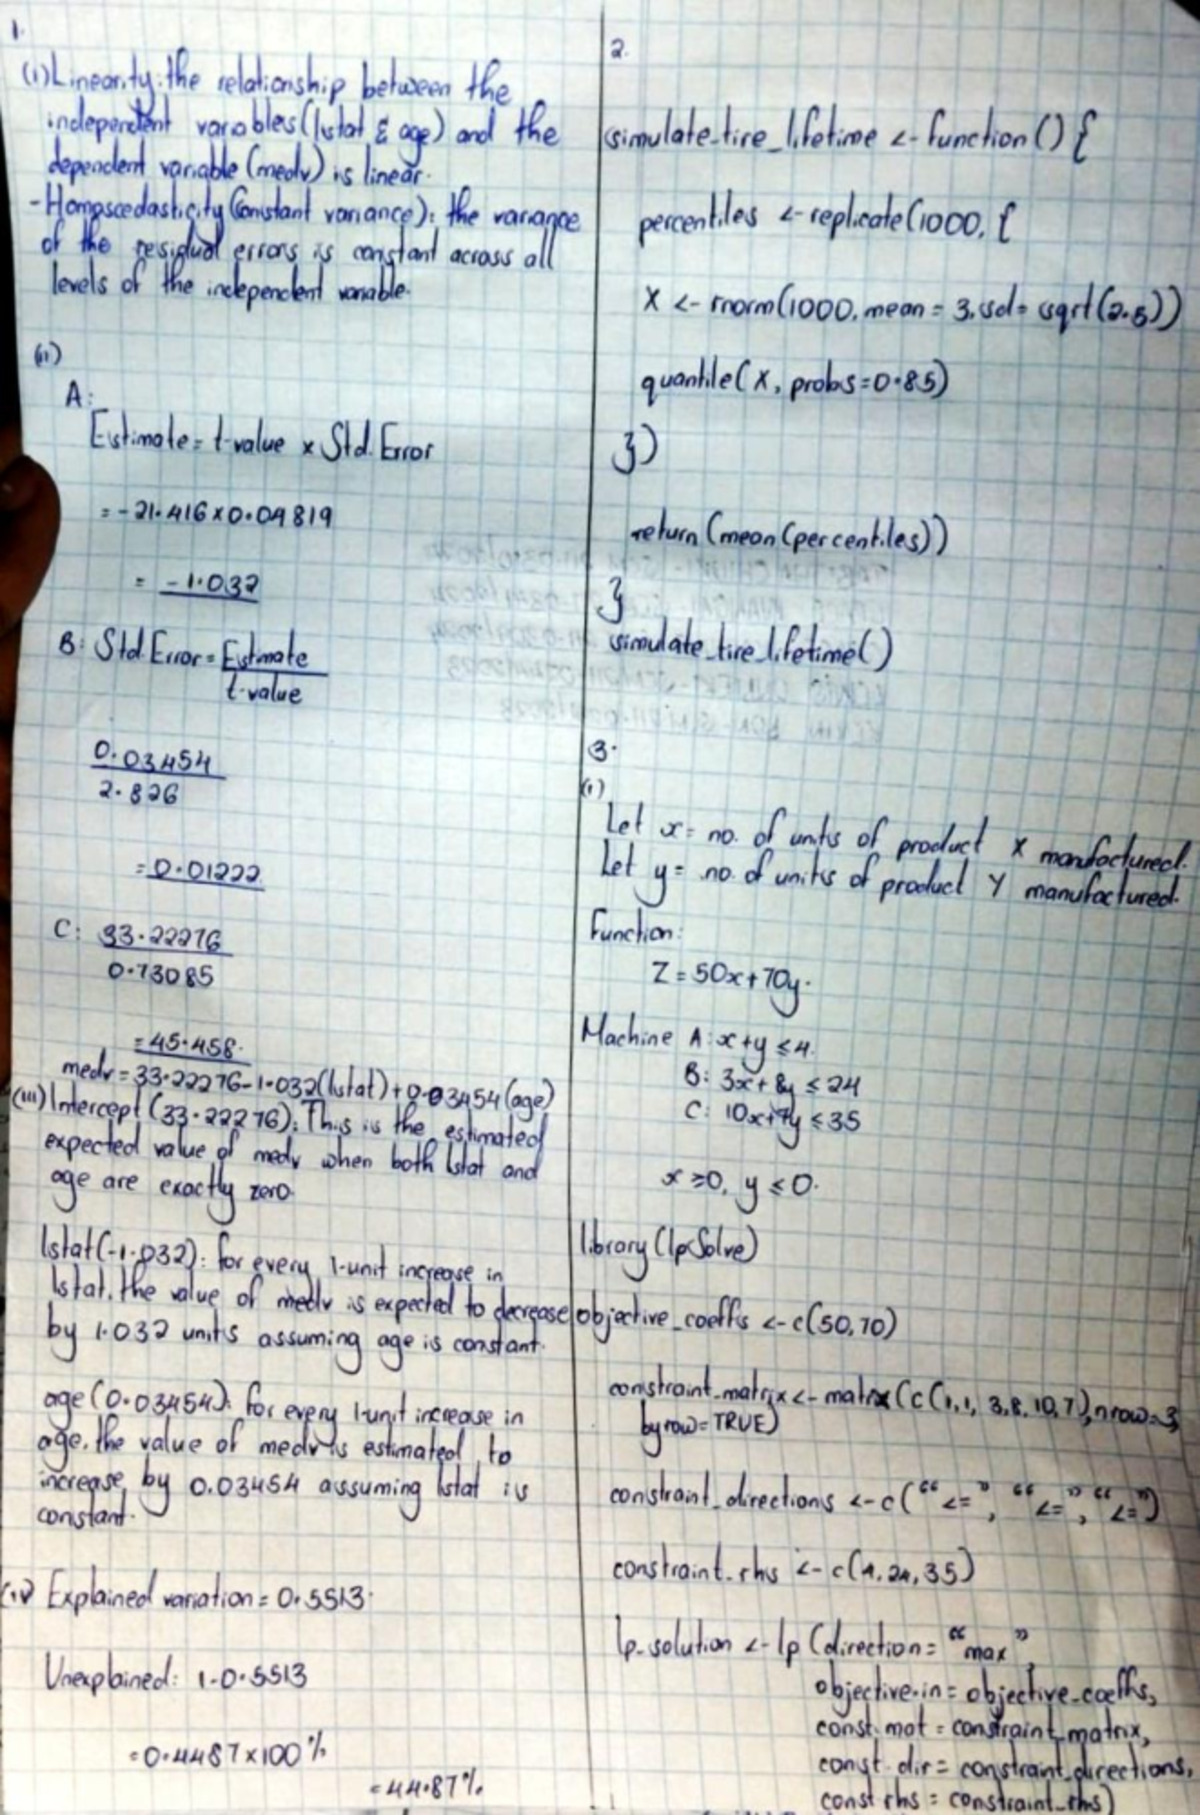 1.
(i) Linearity: the relationship between the
independent variables (lstat & age) and the
dependent variable (medv) is linear.
- Homoscedasticity (Constant variance): the variance
of the residual errors is constant across all
levels of the independent variable.
(ii)
A:
Estimate = t-value × Std. Error
= -21.416 × 0.04819
= -1.032
B: Std. Error = Estimate
t-value
0.03454
2.826
= 0.01222
C: 33.22276
0.73085
= 45.458.
medv = 33.22276 - 1.032(lstat) + 0.03454(age)
(iii) Intercept (33.22276): This is the estimated
expected value of medv when both lstat and
age are exactly zero.
lstat (-1.032): for every 1-unit increase in
lstat, the value of medv is expected to decrease
by 1.032 units assuming age is constant.
age (0.03454): for every 1-unit increase in
age, the value of medv is estimated to
increase by 0.03454 assuming lstat is
constant.
(iv) Explained variation = 0.5513.
Unexplained: 1-0.5513
= 0.4487 × 100%
= 44.87%
2.
simulate_tire_lifetime <- function() {
percentiles <- replicate(1000, {
X <- rnorm(1000, mean = 3, sd = sqrt(2.5))
quantile(X, probs=0.85)
})
return (mean(percentiles))
}
simulate_tire_lifetime()
3.
(i)
Let x = no. of units of product X manufactured.
Let y = no. of units of product Y manufactured.
Function:
Z = 50x + 70y.
Machine A: x + y ≤ 4.
B: 3x + 8y ≤ 24
C: 10x + 7y ≤ 35
x ≥ 0, y ≤ 0.
library(lpSolve)
objective_coeffs <- c(50,70)
constraint_matrix <- matrix(c(1,1, 3,8,10,7), nrow=3,
byrow=TRUE)
constraint_directions <- c("<=", "<=", "<=")
constraint_rhs <- c(4,24,35)
lp_solution <- lp (direction = "max",
objective.in = objective_coeffs,
const.mat = constraint_matrix,
const.dir = constraint_directions,
const.rhs = constraint_rhs)